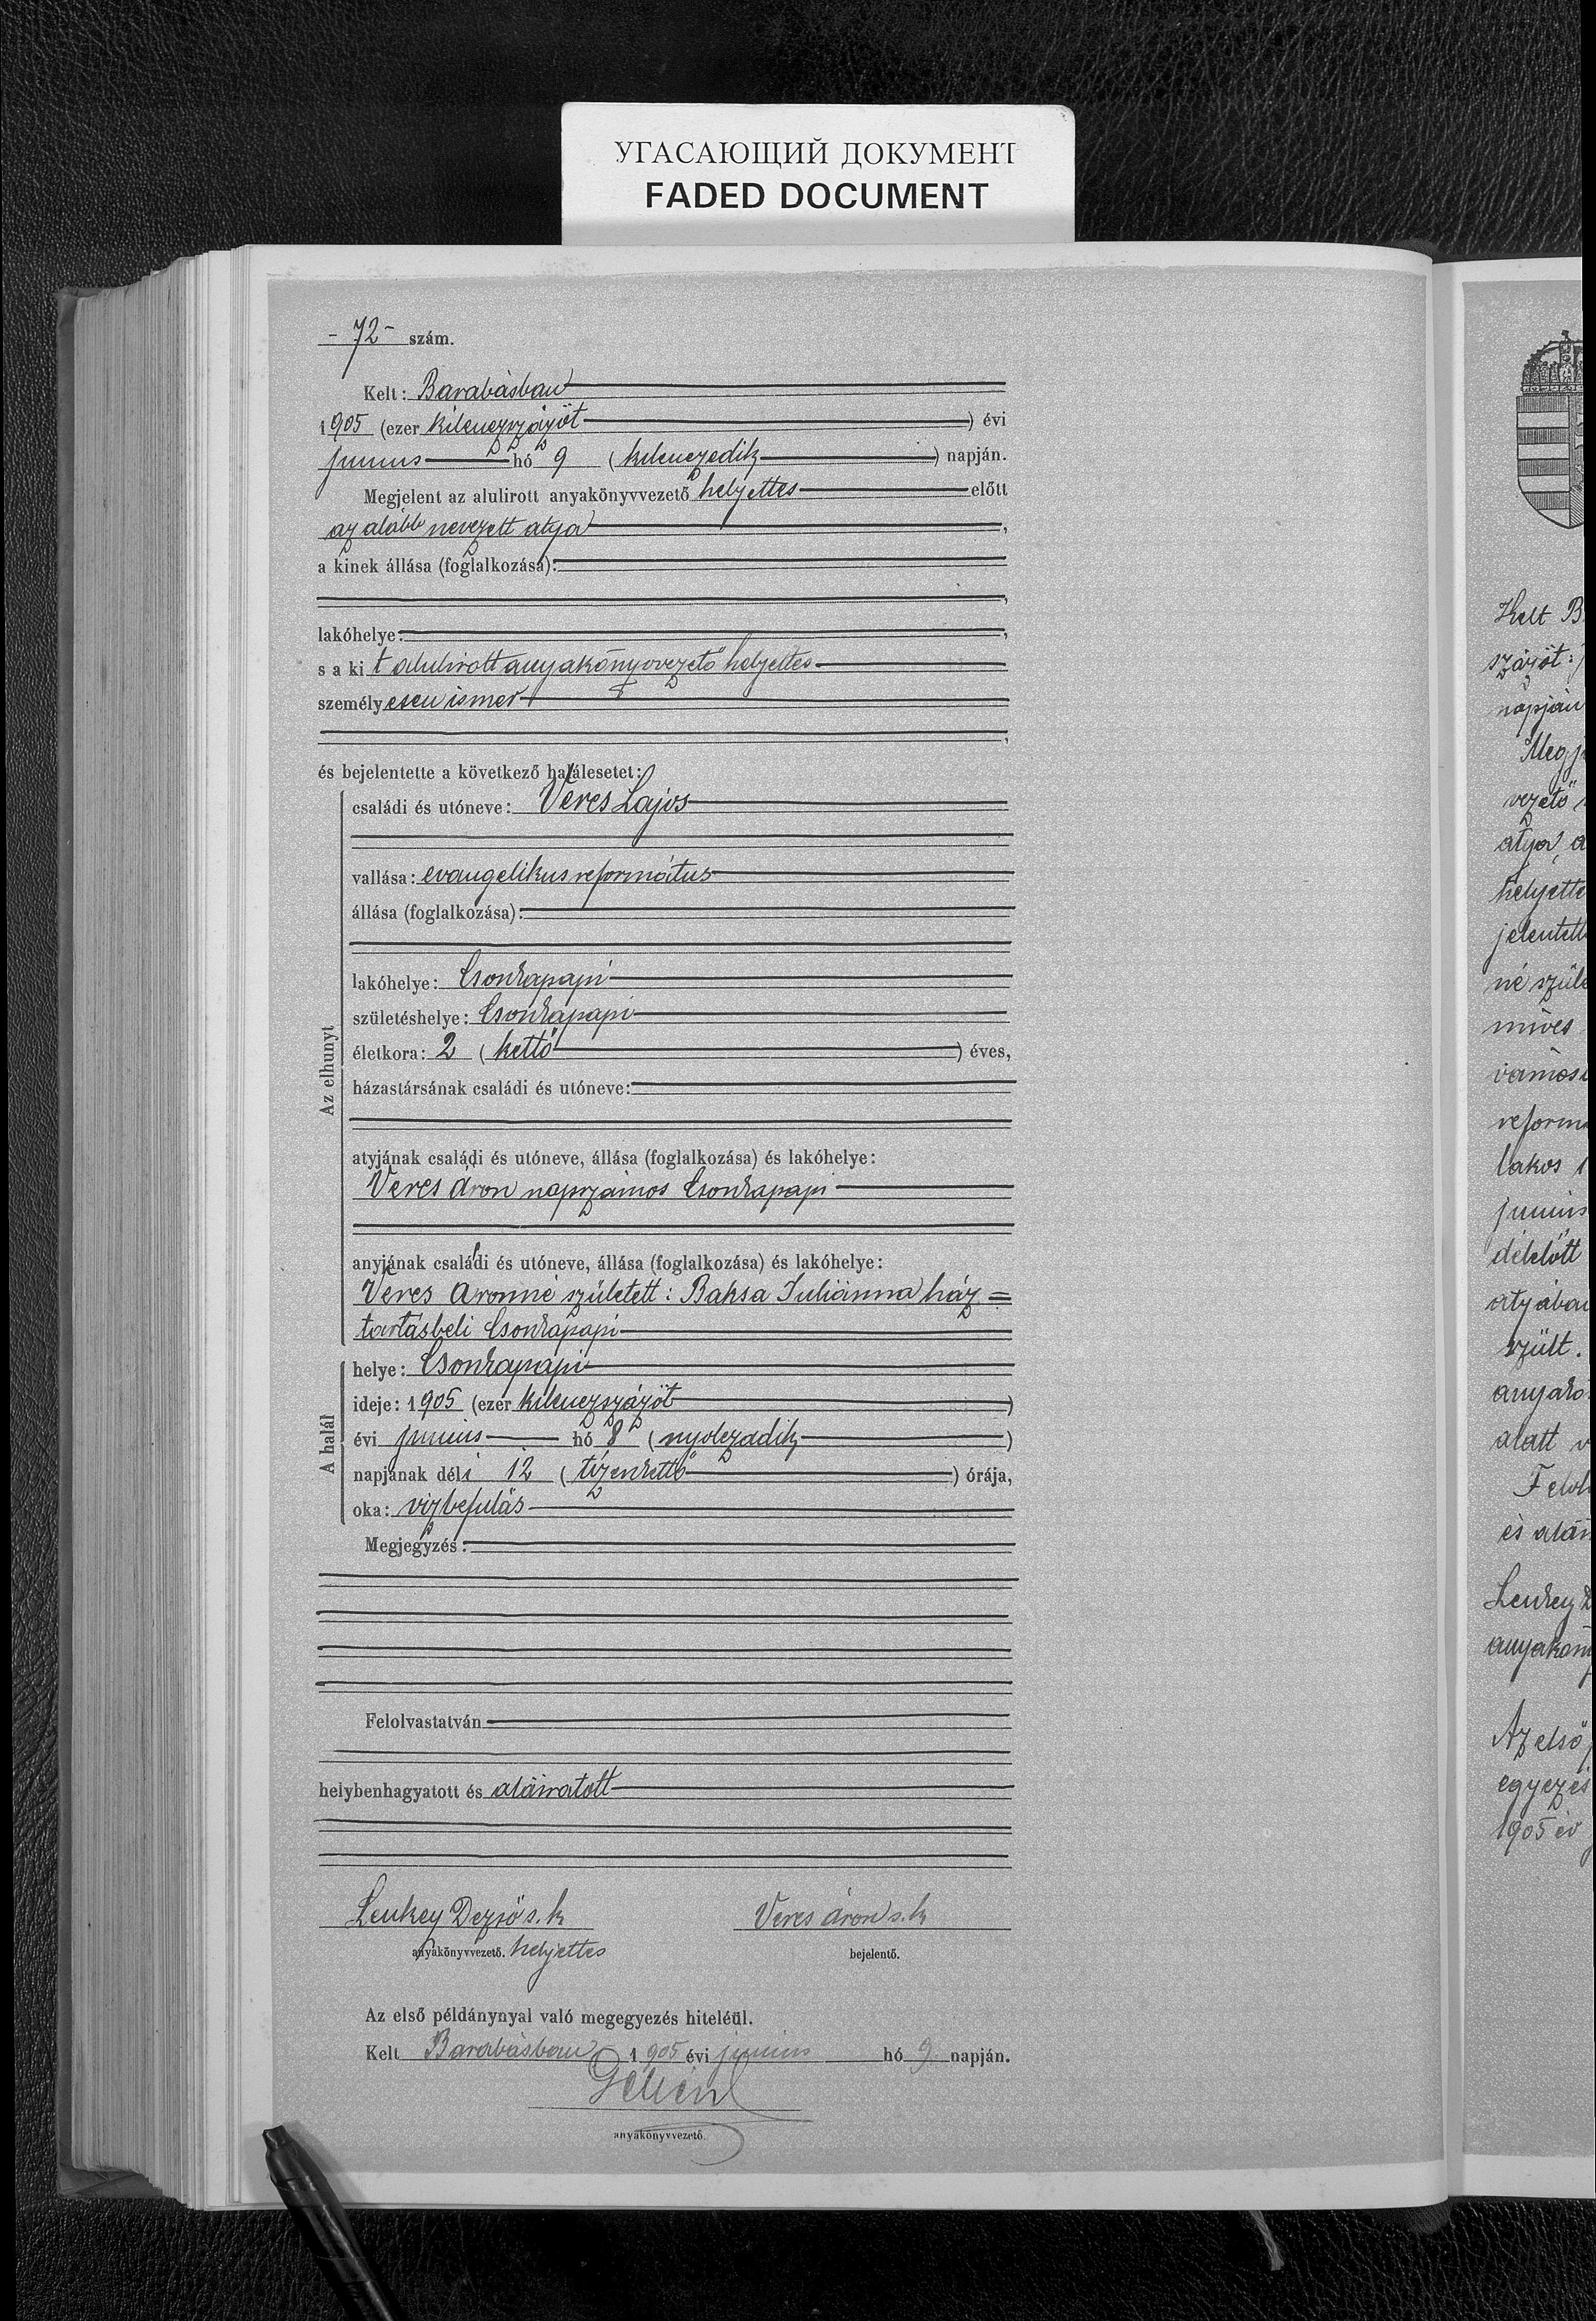 УГАСАЮЩИЙ ДОКУМЕНТ
FADED DOCUMENT
- 72 - szám.
Kelt: Barabásban
1905 (ezer kilenczszázöt) évi
junius hó 9 (kilenczedik) napján.
Megjelent az alulirott anyakönyvvezető helyettes előtt
az alább nevezett atya,
a kinek állása (foglalkozása):
lakóhelye:
s a kit alulirott anyakönyvvezető helyettes
személyesen ismer
és bejelentette a következő halálesetet:
Az elhunyt
családi és utóneve: Veres Lajos
vallása: evangelikus református
állása (foglalkozása):
lakóhelye: Csonkapapi
születéshelye: Csonkapapi
életkora: 2 (kettő) éves,
házastársának családi és utóneve:
atyjának családi és utóneve, állása (foglalkozása) és lakóhelye:
Veres Áron napszámos Csonkapapi
anyjának családi és utóneve, állása (foglalkozása) és lakóhelye:
Veres Áronné született: Baksa Juliánna ház=
tartásbeli Csonkapapi
A halál
helye: Csonkapapi
ideje: 1905 (ezer kilenczszázöt)
évi junius hó 8 (nyolczadik)
napjának déli 12 (tizenkettő) órája,
oka: vizbefulás
Megjegyzés:
Felolvastatván
helybenhagyatott és aláiratott
Lenkey Dezső s. k. Veres Áron s. k.
anyakönyvvezető. helyettes bejelentő.
Az első példánynyal való megegyezés hiteléül.
Kelt Barabásban 1905 évi junius hó 9. napján.
anyakönyvvezető.
Kelt B
százöt:
napján
Megj
vezető
atya a
helyette
jelentett
né szüle
mives
vámos
reform
lakos
junius
délelőtt
atyában
szült.
anyakö
alatt v
Felol
és alái
Lenkey D
anyaköny
Az első p
egyezés
1905 év